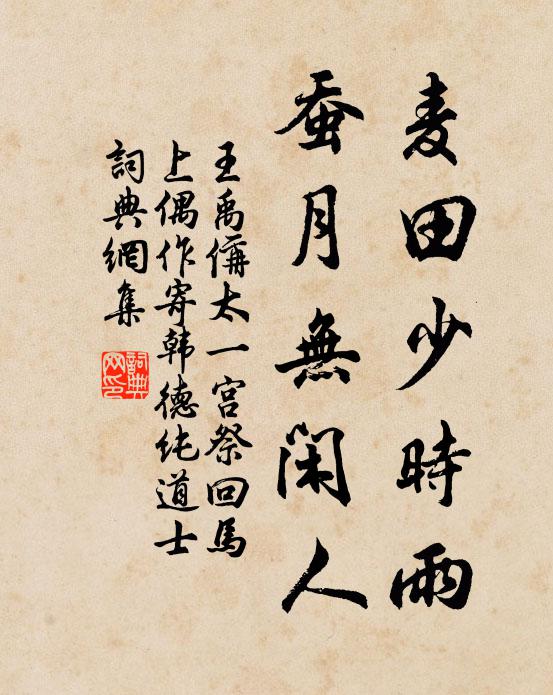 麦田少時雨
蚕月無閑人
王禹偁太一宫祭回馬
上偶作寄韩德纯道士
詞典網集
詞典
网印